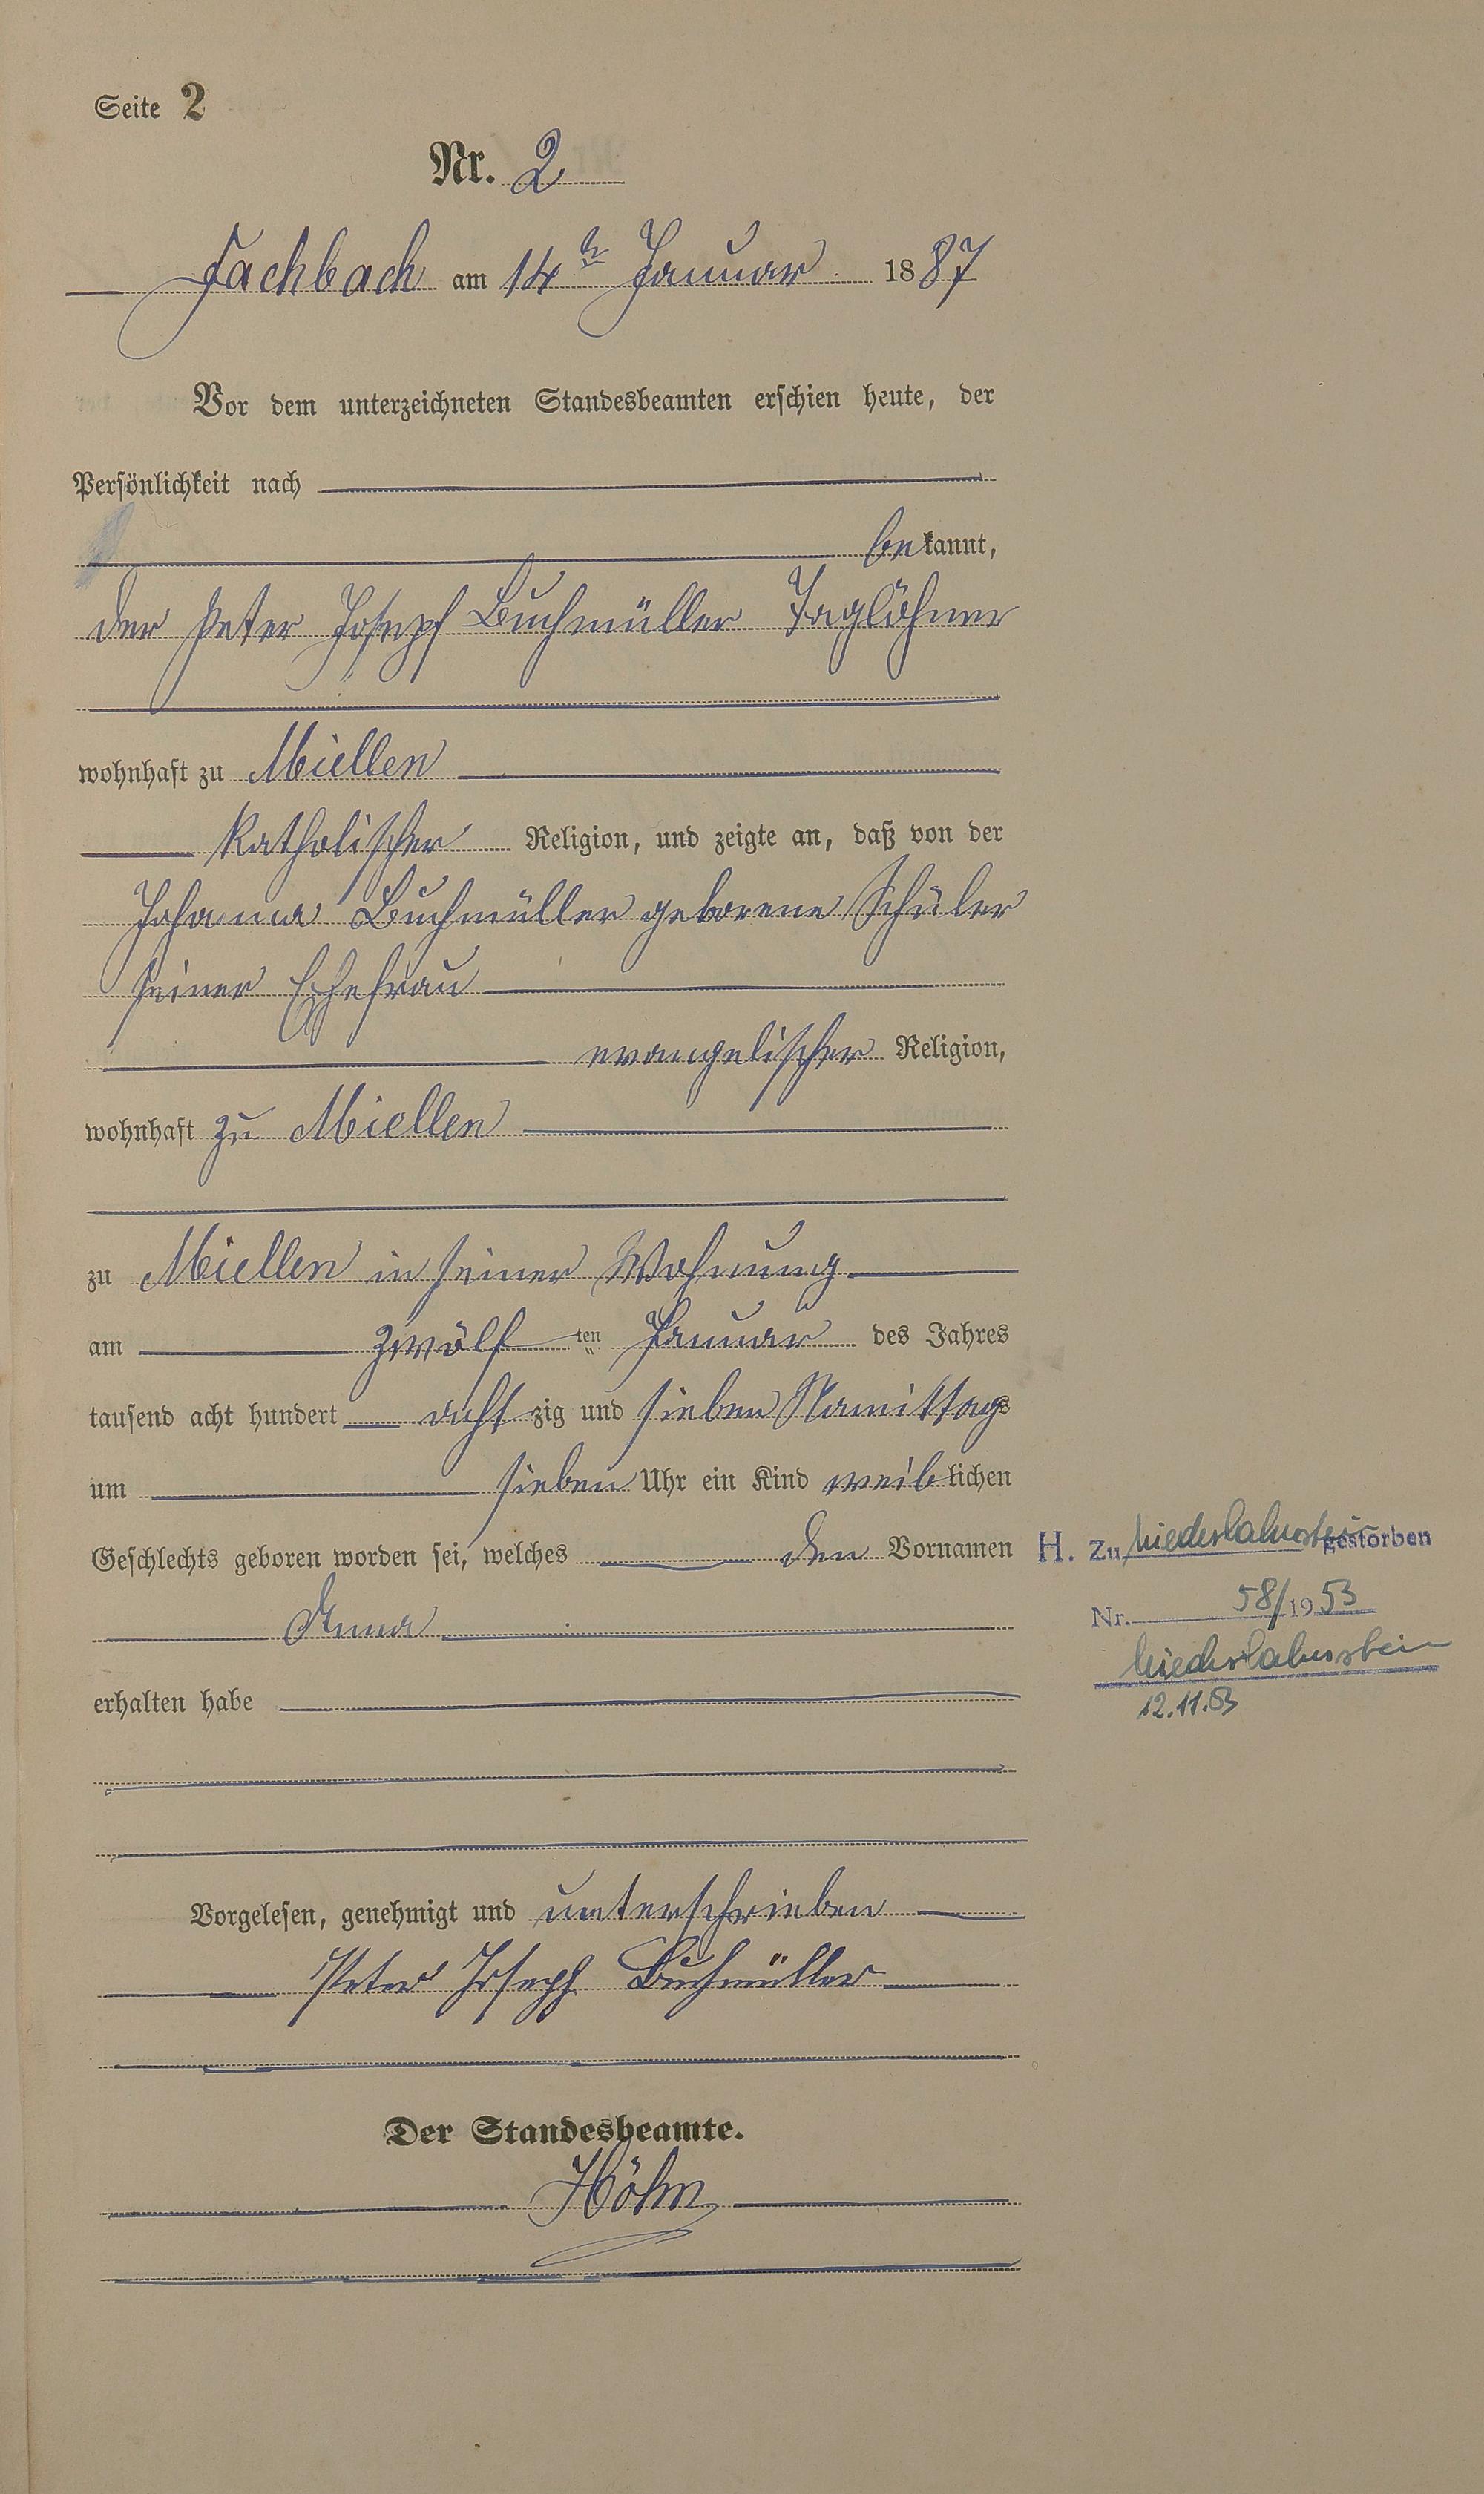 Seite 2
Nr. 2
Fachbach am 14ten Januar 1887
Vor dem unterzeichneten Standesbeamten erschien heute, der
Persönlichkeit nach
bekannt,
der Peter Joseph Buchmüller Taglöhner
wohnhaft zu Miellen
katholischer Religion, und zeigte an, daß von der
Johanna Buchmüller geborene Schüler
seiner Ehefrau
evangelischer Religion,
wohnhaft zu Miellen
zu Miellen in seiner Wohnung
am zwölften Januar des Jahres
tausend acht hundert achtzig und sieben Namittags
um sieben Uhr ein Kind weiblichen
Geschlechts geboren worden sei, welches den Vornamen
Anna
erhalten habe
H. Zu Niederlahnstein gestorben
Nr. 58/1953
Niederlahnstein
12.11.53
Vorgelesen, genehmigt und unterschrieben
Peter Joseph Buchmüller
Der Standesbeamte.
Höhn